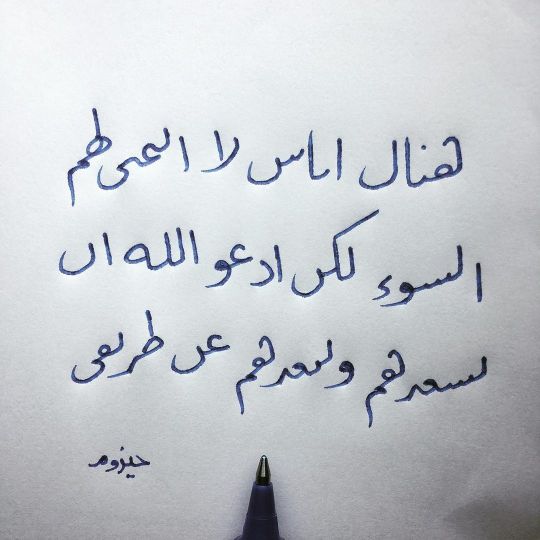 هناك اناس لا اتمنى لهم
السوء لكن ادعو الله ان
يسعدهم ويبعدهم عن طريقي
حيزوم